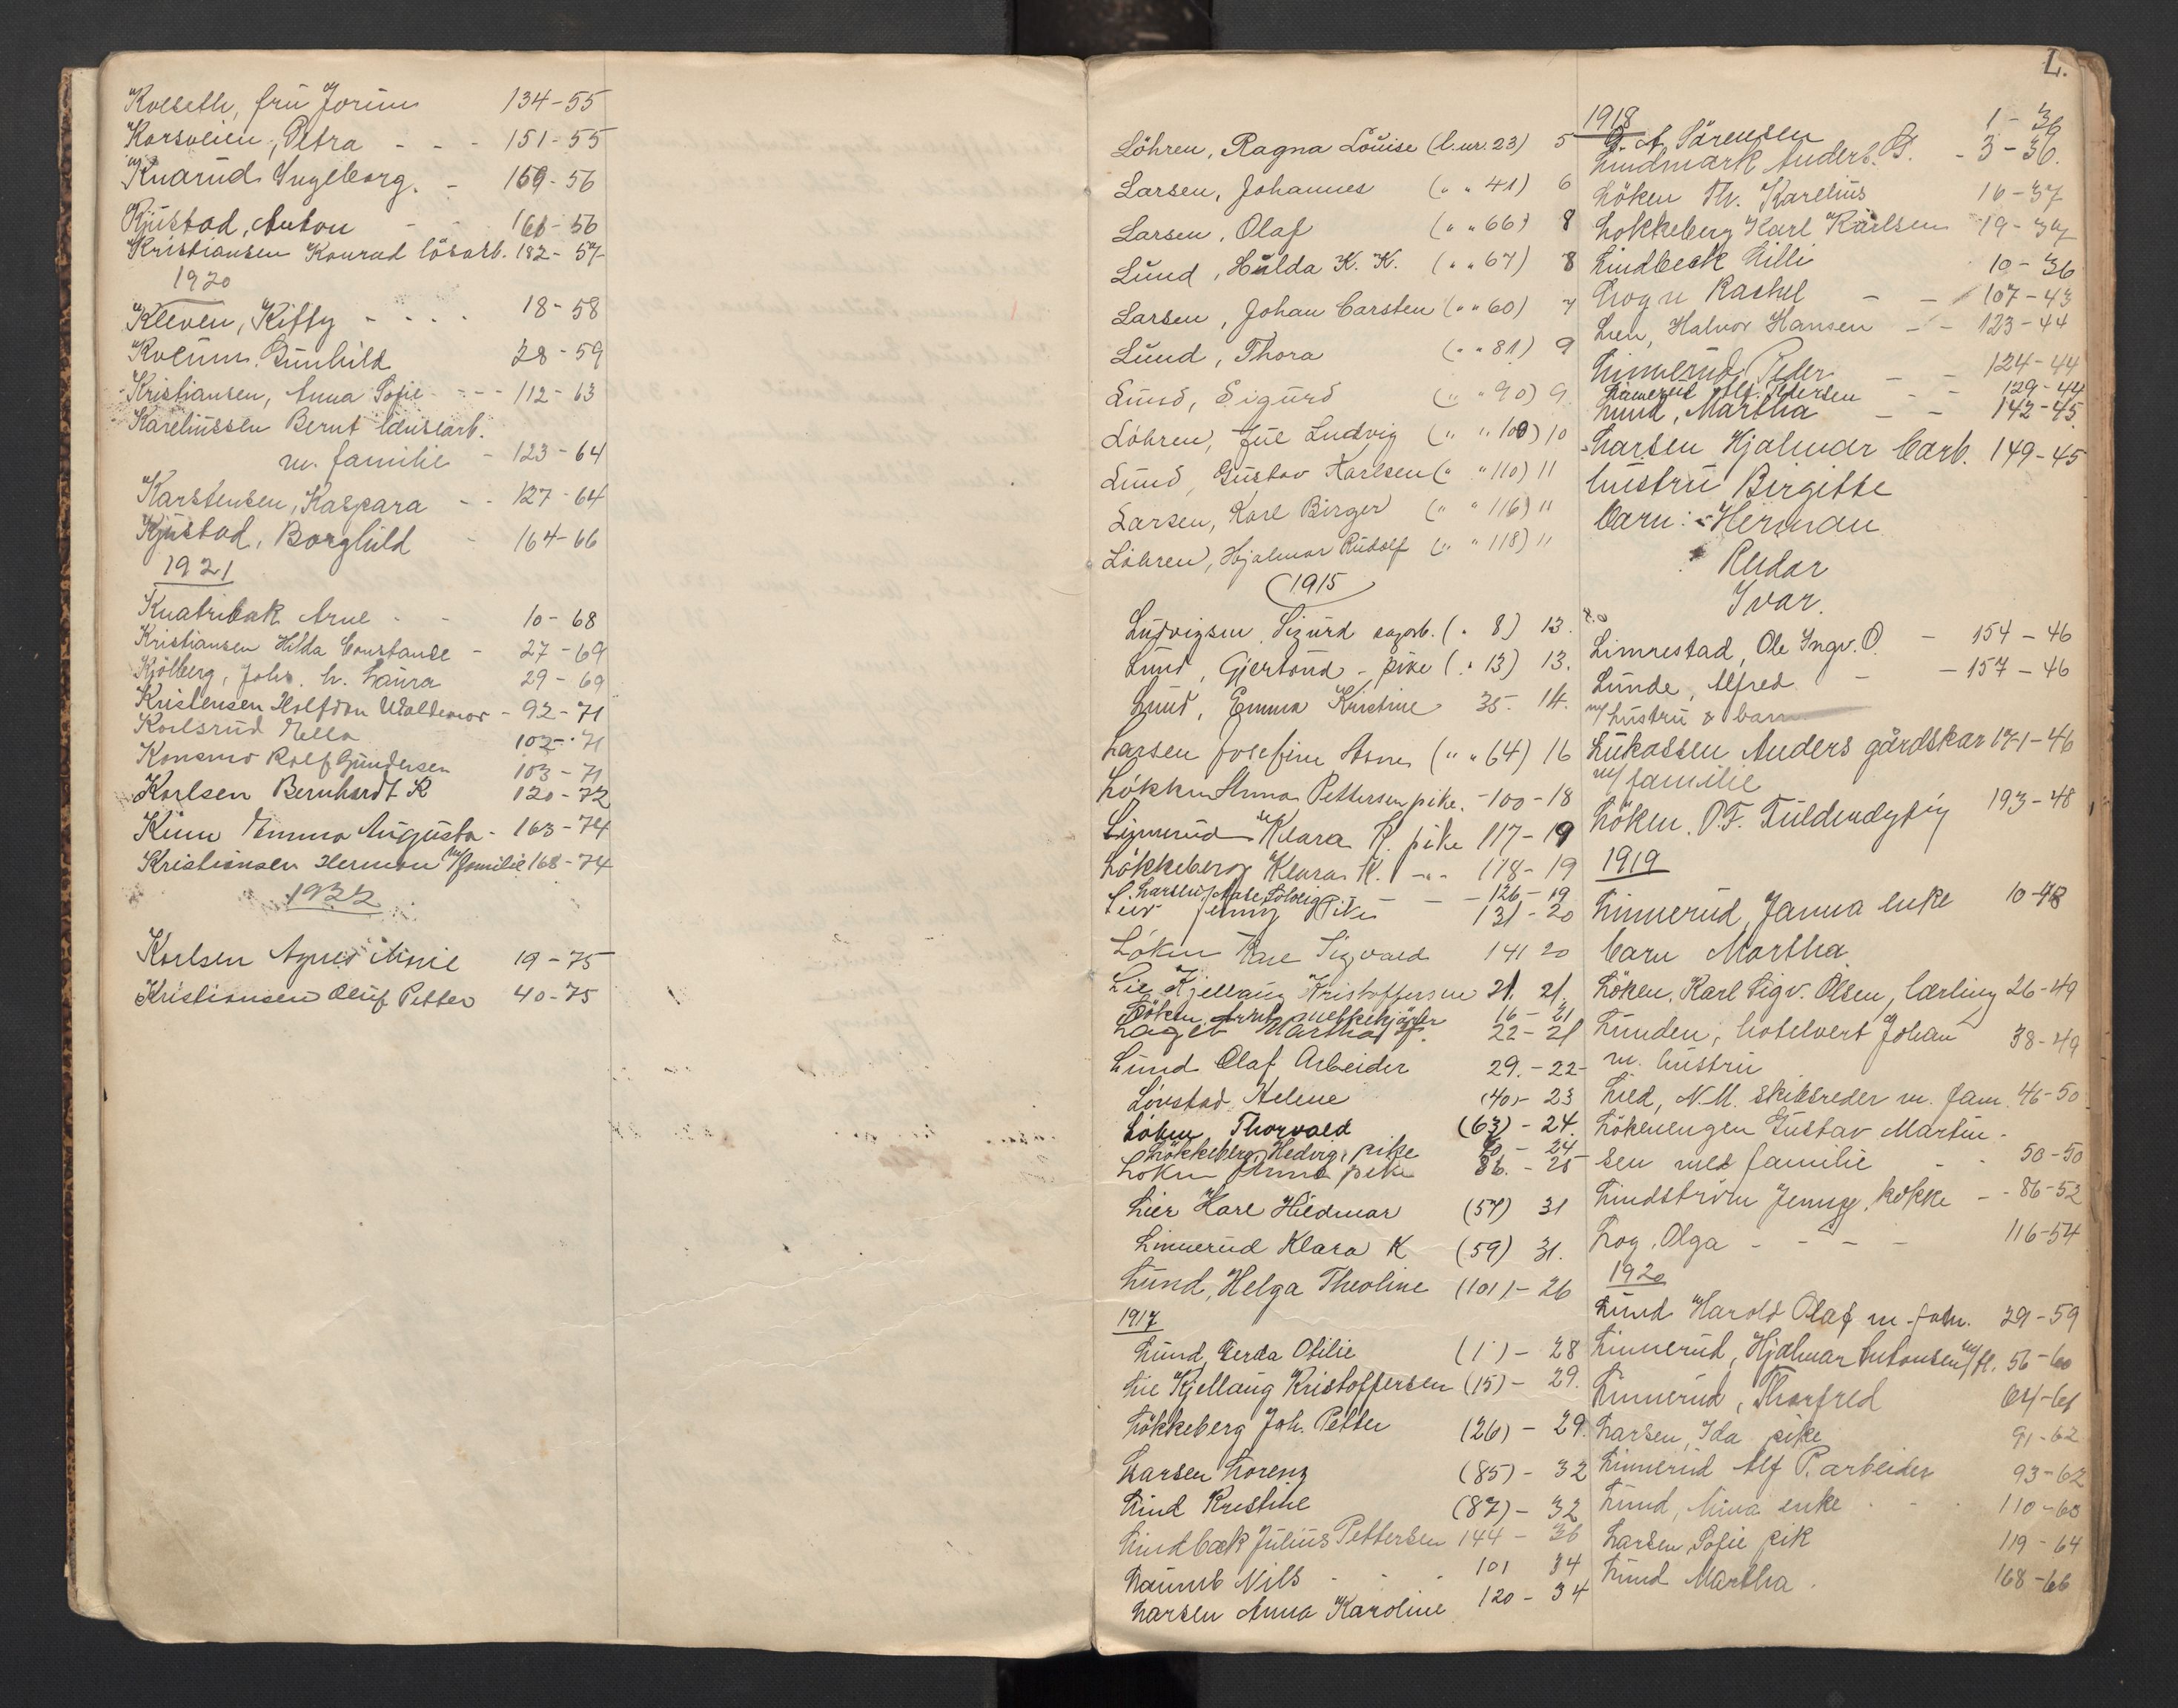 Kolseth, fru Jorun 134-55
Korsveien, Petra - - - 151-55
Knarud Ingeborg. - 159-56
Kjustad, Anton - - 161-56
Kristiansen Konrad lösarb. 182-57
1920
Kleven, Kitty - - - - 18-58
Kolum Gunhild 38-59
Kristiansen, Anna Sofie - - - 112-63
Kareliussen Bernt lensearb.
m. familie - 123-64
Karstensen, Kaspara - - 127-64
Kjustad, Borghild - 164-66
1921
Knatribak Arne - - 10-68
Kristiansen Hilda Constanse - 27-69
Kjölberg, Johs. h. Laura 29-69
Kristensen Halfdan Waldemar - 92-71
Karlsrud Mella 102-71
Konsmo Rolf Gundersen 103-71
Karlsen Bernhardt R 120-72
Kinn Emma Augusta - 163-74
Kristiansen Herman m/familie 168-74
1922
Karlsen Agnes Marie 19-75
Kristiansen Oluf Petter 40-75
L.
Löhren, Ragna Louise (l.nr. 23) 5
Larsen, Johannes (" " 41) 6
Larsen, Olaf (" " 66) 8
Lund, Hulda K. K. (" " 67) 8
Larsen, Johan Carsten (" " 60) 7
Lund, Thora (" " 81) 9
Lund, Sigurd (" " 90) 9
Löhren, Jul Ludvig (" " 100) 10
Lund, Gustav Karlsen (" " 110) 11
Larsen, Karl Birger (" " 116) 11
Löhren, Hjalmar Rudolf (" " 118) 11
1915
Ludvigsen, Sigurd sagarb. (" 8) 13.
Lund, Gjertrud - pike (" 13) 13.
Lund, Emma Kristine 35- 14.
Larsen Josefine Anna (" " 64) 16
Lökken Anna Pettersen pike. - 100-18
Linnerud Klara K. pike 117-19
Lökkeberg Klara K. - " - 118-19
Larsen, Aase Solveig - - - 126-19
Lier Jenny Pike 131-20
Löken Kare Sigvald 141 20
Lie Kjellaug Kristoffersen 21. 21.
Löken Arnt melkekjører 16-21
Laget Martha J. 22-21
Lund Olaf Arbeider 29.-22-
Lövstad Helene (40)- 23
Löken Thorvald (63)-24.
Lökkeberg Hedvig, pike 80-24
Löken Anna pike 86.-25
Lier Karl Hildmar (57) 31
Linnerud Klara K (59) 31.
Lund, Helga Theoline (101)-26
1917
Lund, Gerda Otilie (1)-28
Lie Kjellaug Kristoffersen (15)-29.
Lökkeberg Joh. Petter (26)-29.
Larsen Lorenz (85)-32
Lind Kristine (87)-32
Lindbæk Julius Pettersen 144-36
Laumb Nils - - - 101 34
Larsen Anna Karoline 120-34
1918
G. A. Sörensen 1-36
Lindmark Anders G. - 3-36.
Löken Th. Karelius 16-37
Lökkeberg Karl Karlsen 19-37
Lindbeck Lilli 10-36
Logn Rachel - - 107-43
Lien, Halvor Hansen - - 123-44
Linnerud Peder - - 124-44
Linnerud Alf. Pedersen - - 129-44
Lund, Martha - - 142-45.
Larsen Hjalmar Carb. 149-45
hustru Birgitte
barn: Herman
Reidar
Ivar.
Limrestad, Ole Ingv. O. - 154-46
Lunde, Alfred - - 157-46
m/ hustru & barn
Lukassen Anders gårdskar 171-46
m/ familie
Löken. O.F. Fuldendyktig 193-48
1919
Linnerud, Janna enke 10-48
barn Martha.
Löken. Karl Sigv. Olsen, lærling 26-49
Lunden, hotelvert Johan 38-49
m. hustru
Lied, N.M. skibsreder m. fam. 46-50
Lökenengen Gustav Martin-
sen med familie - - 50-50
Lindström Jenny, kokke - - 86-52
Log, Olga - - - - 116-54
1920
Lund Harold Olaf m. fam. 29-59
Linnerud, Hjalmar Antonsen m/fl. 56-60
Linnerud, Thorfred 64-61
Larsen, Ida pike 91-62
Linnerud Alf P. arbeider 93-62
Lund, Mina enke - - - 110-63
Larsen, Sofie pik 119-64
Lund Martha. 168-66